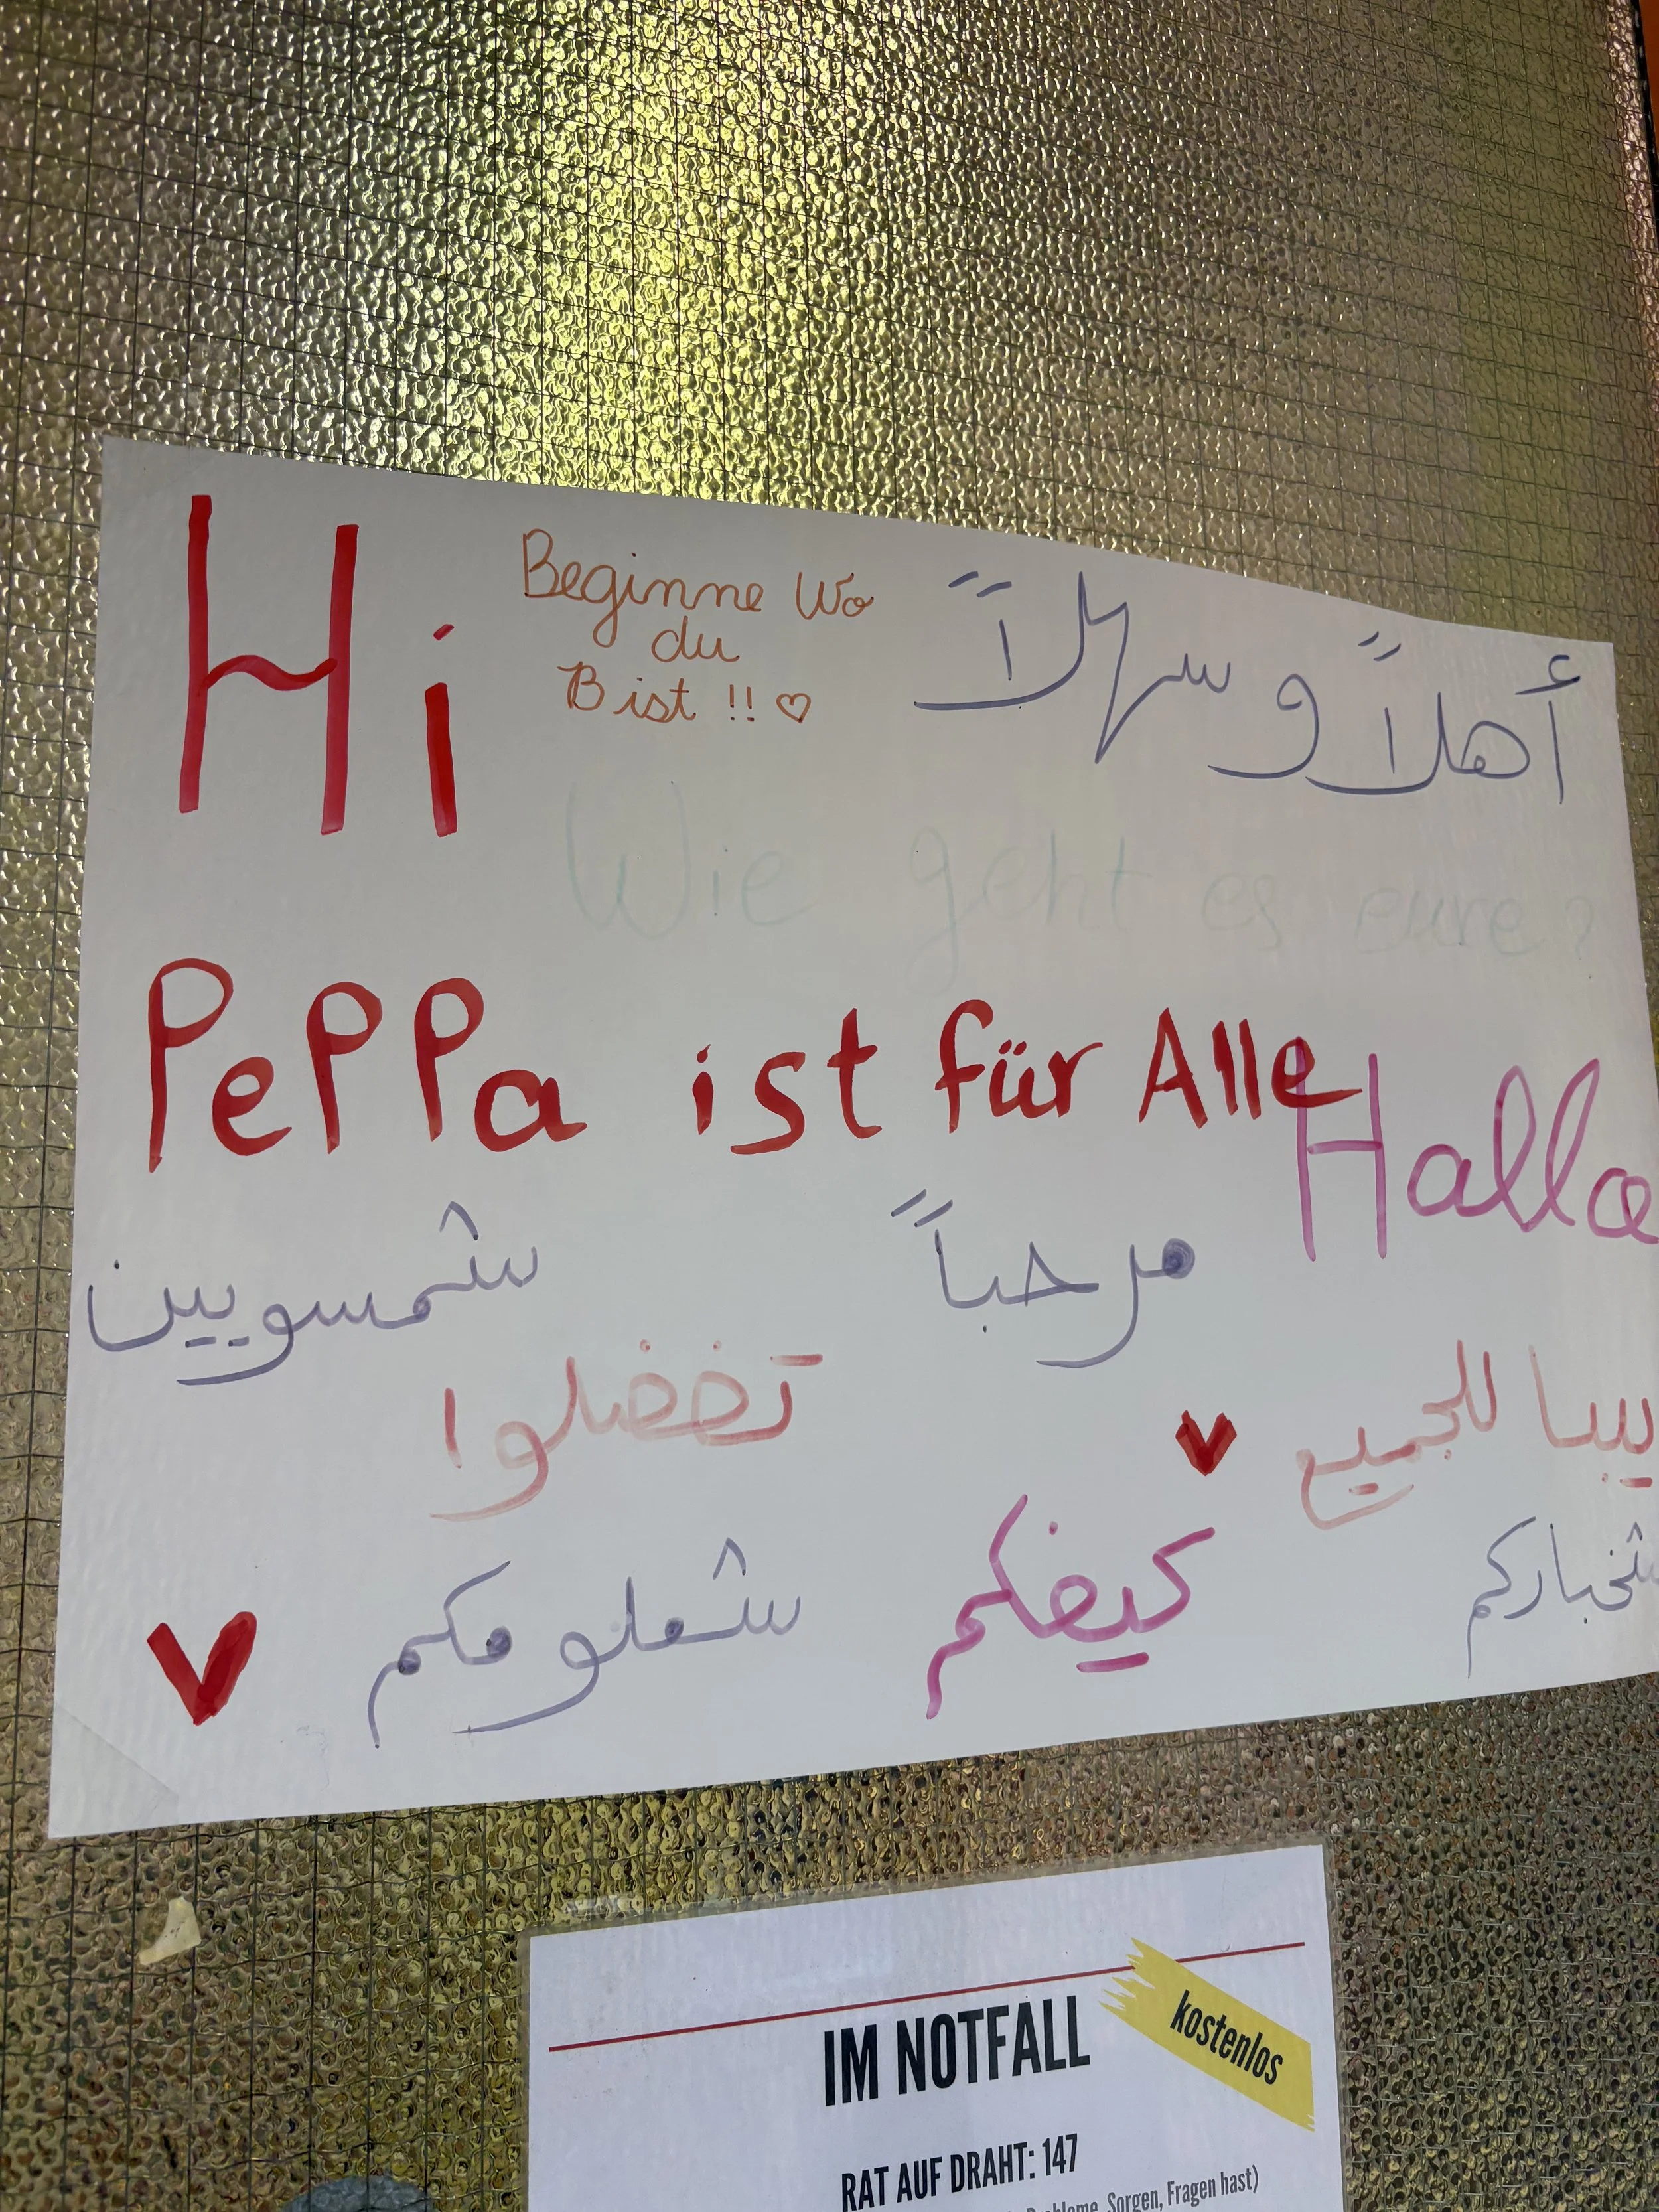 Hi
Beginne Wo
du
Bist !! ♡
أهلاً وسهلاً
Wie geht es eure?
PePPa ist für Alle
Hallo
مرحباً
شمسويين
تفضلوا
بيبا للجميع
شلومكم
كيفكم
شخباركم
IM NOTFALL
kostenlos
RAT AUF DRAHT: 147
Sorgen, Fragen hast)